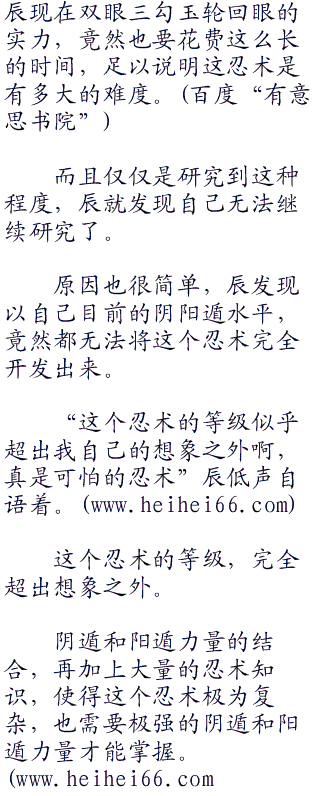 辰现在双眼三勾玉轮回眼的
实力，竟然也要花费这么长
的时间，足以说明这忍术是
有多大的难度。(百度“有意
思书院”)
而且仅仅是研究到这种
程度，辰就发现自己无法继
续研究了。
原因也很简单，辰发现
以自己目前的阴阳遁水平，
竟然都无法将这个忍术完全
开发出来。
“这个忍术的等级似乎
超出我自己的想象之外啊，
真是可怕的忍术”辰低声自
语着。(www.heihei66.com)
这个忍术的等级，完全
超出想象之外。
阴遁和阳遁力量的结
合，再加上大量的忍术知
识，使得这个忍术极为复
杂，也需要极强的阴遁和阳
遁力量才能掌握。
(www.heihei66.com